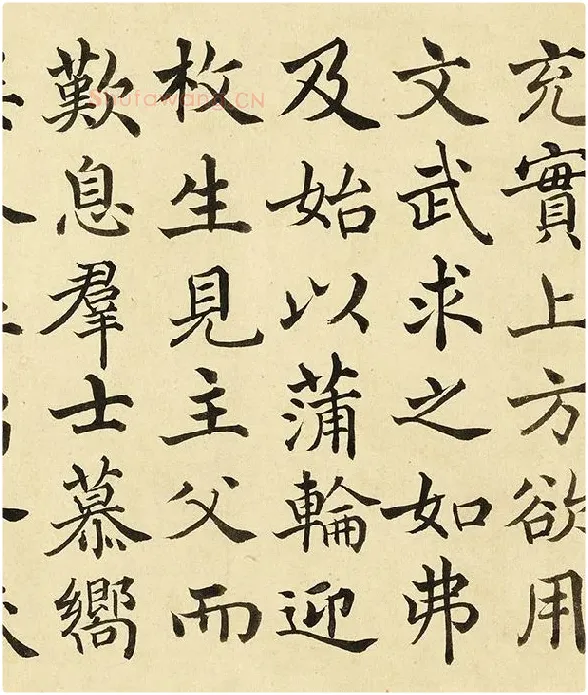 充實上方欲用
文武求之如弗
及始以蒲輪迎
枚生見主父而
歎息羣士慕嚮
Shufawang.CN